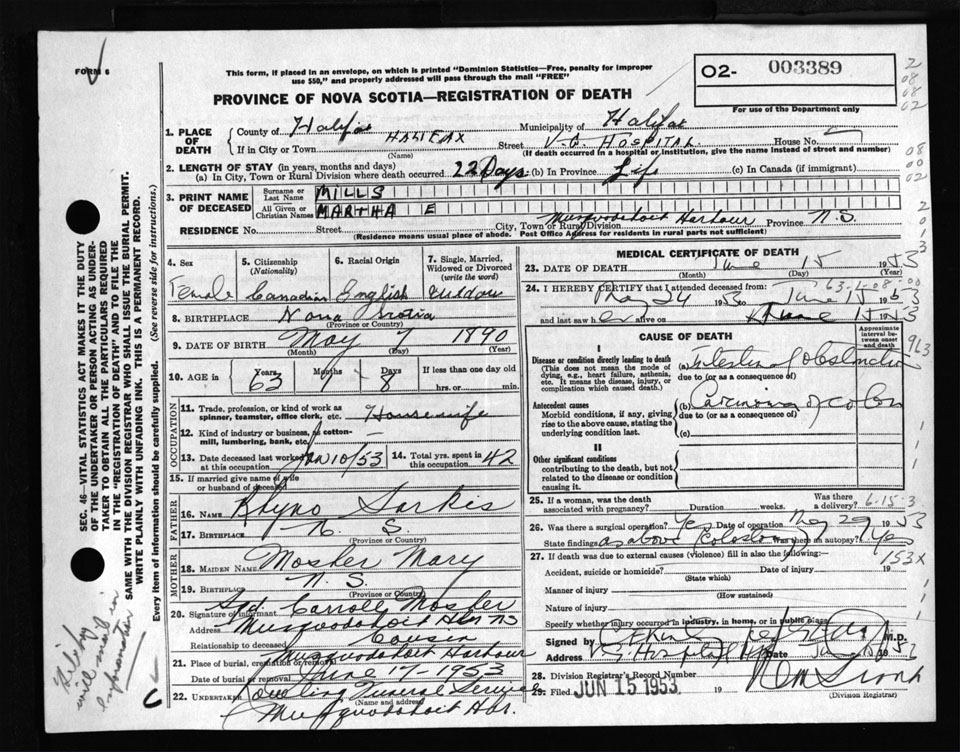 FORM 6
This form, if placed in an envelope, on which is printed "Dominion Statistics—Free, penalty for improper
use $50," and properly addressed will pass through the mail "FREE"
O2- 003389
For use of the Department only
PROVINCE OF NOVA SCOTIA—REGISTRATION OF DEATH
1. PLACE OF DEATH
County of Halifax Municipality of Halifax
If in City or Town HALIFAX Street V.G. HOSPITAL House No.
(Name) (If death occurred in a hospital or institution, give the name instead of street and number)
2. LENGTH OF STAY (in years, months and days)
(a) In City, Town or Rural Division where death occurred 22 Days (b) In Province Life (c) In Canada (if immigrant)
3. PRINT NAME OF DECEASED
Surname or Last Name MILLS
All Given or Christian Names MARTHA E
RESIDENCE No. Street City, Town or Rural Division Musquodoboit Harbour Province N.S.
(Residence means usual place of abode. Post Office Address for residents in rural parts not sufficient)
4. Sex Female
5. Citizenship (Nationality) Canadian
6. Racial Origin English
7. Single, Married, Widowed or Divorced (write the word) Widow
8. BIRTHPLACE Nova Scotia
(Province or Country)
9. DATE OF BIRTH May 7 1890
(Month) (Day) (Year)
10. AGE in Years 63 Months 1 Days 8 If less than one day old
hrs. or min.
OCCUPATION
11. Trade, profession, or kind of work as spinner, teamster, office clerk, etc. Housewife
12. Kind of industry or business, as cotton-mill, lumbering, bank, etc.
13. Date deceased last worked at this occupation Jan 10/53
14. Total yrs. spent in this occupation 42
15. If married give name of wife or husband of deceased
FATHER
16. NAME
17. BIRTHPLACE N. S.
(Province or Country)
MOTHER
18. MAIDEN NAME Mosher Mary
19. BIRTHPLACE N.S.
(Province or Country)
20. Signature of informant Sgd. Carroll Mosher
Address Musquodoboit Hbr NS
Relationship to deceased Cousin
21. Place of burial, cremation or removal Musquodoboit Harbour
Date of burial or removal June 17-1953
22. UNDERTAKER Funeral Service
(Name and address)
Musquodoboit Hbr.
MEDICAL CERTIFICATE OF DEATH
23. DATE OF DEATH June 15 1953
(Month) (Day) (Year)
24. I HEREBY CERTIFY that I attended deceased from:
May 24 1953 to June 15 1953
and last saw her alive on June 15 1953
CAUSE OF DEATH
Approximate interval between onset and death
I
Disease or condition directly leading to death
(This does not mean the mode of dying, e.g., heart failure, asthenia, etc. It means the disease, injury, or complication which caused death.)
(a) Intestinal Obstruction
due to (or as a consequence of)
Antecedent causes
Morbid conditions, if any, giving rise to the above cause, stating the underlying condition last.
(b) Carcinoma of colon
due to (or as a consequence of)
(c)
II
Other significant conditions
contributing to the death, but not related to the disease or condition causing it.
25. If a woman, was the death associated with pregnancy? Duration weeks. Was there a delivery?
6-15-3
26. Was there a surgical operation? Yes Date of operation May 29 1953
State findings as above Was there an autopsy? Yes
27. If death was due to external causes (violence) fill in also the following:—
153X
Accident, suicide or homicide? Date of injury 19
(State which)
Manner of injury
(How sustained)
Nature of injury
Specify whether injury occurred in industry, in home, or in public place
Signed by M.D.
Address V.G. Hospital Date
28. Division Registrar's Record Number
29. Filed JUN 15 1953
(Division Registrar)
SEC. 46—VITAL STATISTICS ACT MAKES IT THE DUTY
OF THE UNDERTAKER OR PERSON ACTING AS UNDER-
TAKER TO OBTAIN ALL THE PARTICULARS REQUIRED
IN THE "REGISTRATION OF DEATH" AND TO FILE THE
SAME WITH THE DIVISION REGISTRAR WHO SHALL ISSUE THE BURIAL PERMIT.
WRITE PLAINLY WITH UNFADING INK. THIS IS A PERMANENT RECORD.
Every item of information should be carefully supplied. (See reverse side for instructions.)
will send in
information